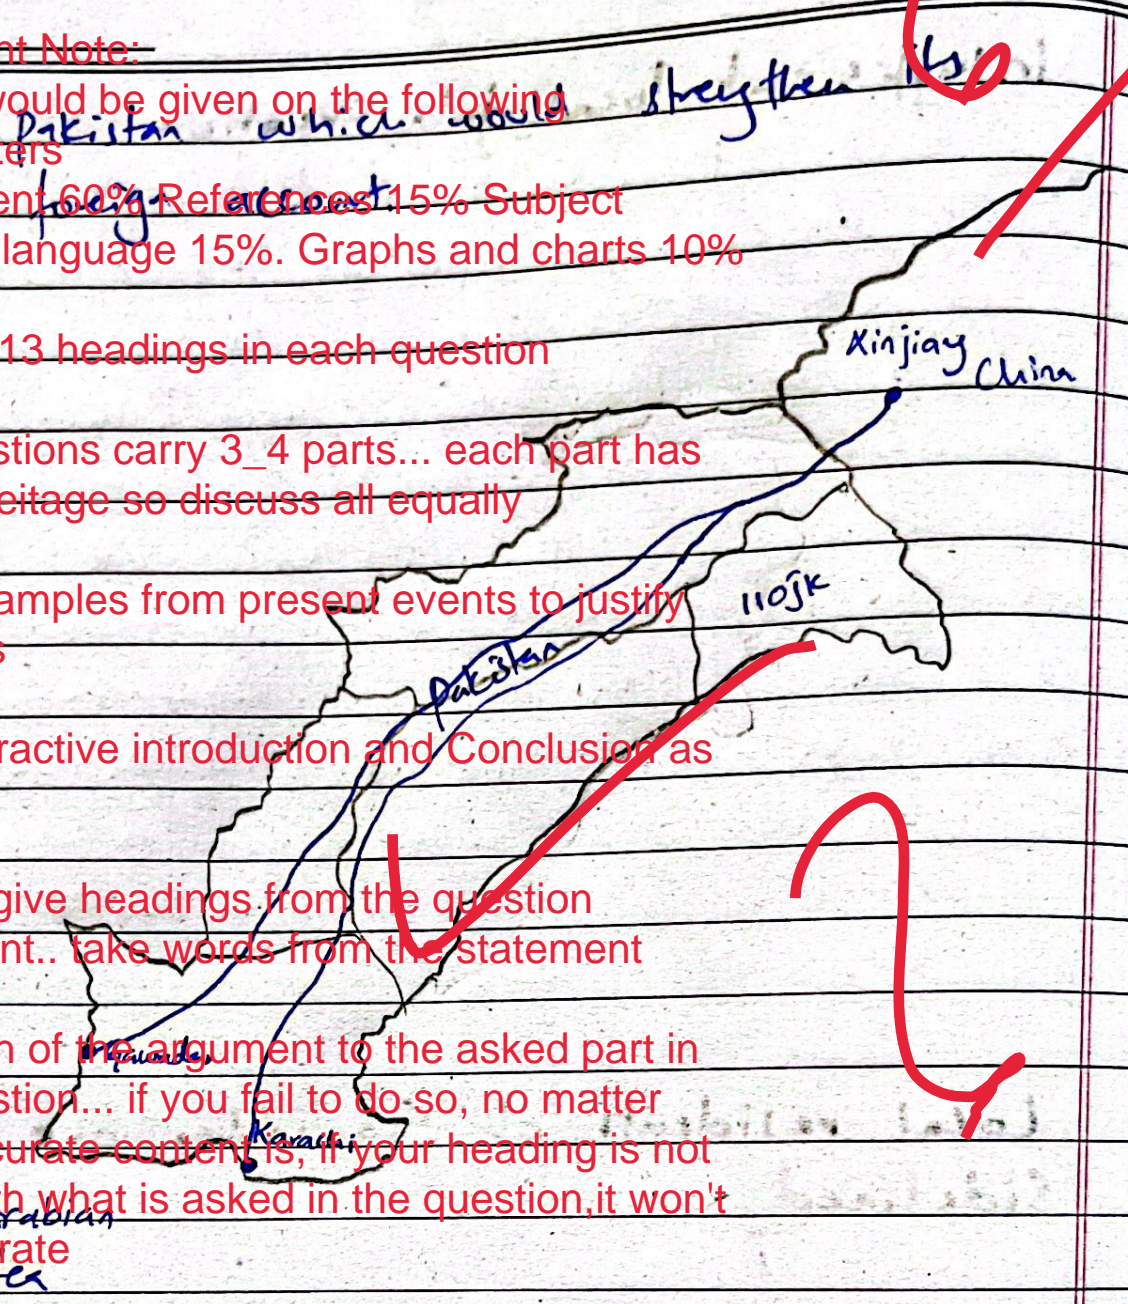 nt Note:
would be given on the following
ters
ent 60% References 15% Subject
language 15%. Graphs and charts 10%
13 headings in each question
stions carry 3_4 parts... each part has
eitage so discuss all equally
amples from present events to justify
s
ractive introduction and Conclusion as
give headings from the question
nt.. take words from the statement
n of the argument to the asked part in
stion... if you fail to do so, no matter
curate content is, if your heading is not
th what is asked in the question,it won't
rate
Pakistan which would strengthen its
foreign account.
Xinjiang
China
IIOJK
Pakistan
Gwadar
Karachi
rabian
ea